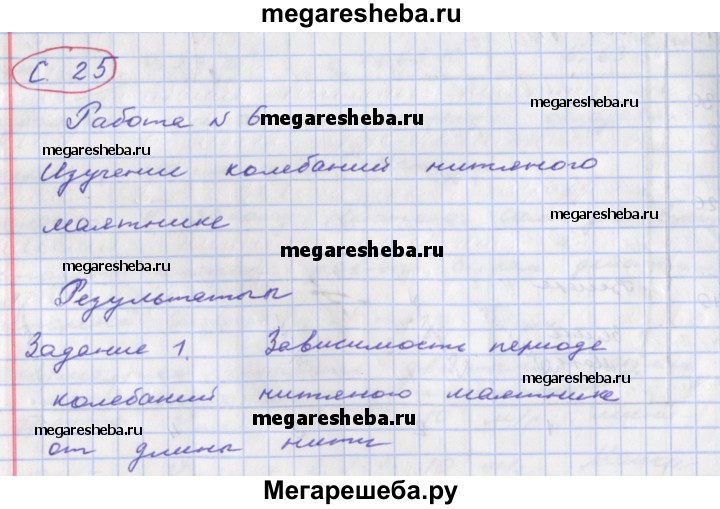 megaresheba.ru
С. 25
megaresheba.ru
Работа № 6
megaresheba.ru
megaresheba.ru
Изучении колебаний нитяного
megaresheba.ru
маятнике
megaresheba.ru
megaresheba.ru
Результаты
Задание 1. Зависимость периоде
megaresheba.ru
колебаний нитяного маятнике
megaresheba.ru
megaresheba.ru
от длины нити
Мегарешеба.ру